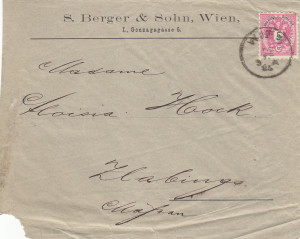 S. Berger & Sohn, Wien,
I., Gonzagagasse 5.
WIEN
5
Madame
Aloisia Hock
Zlabings
Mähren